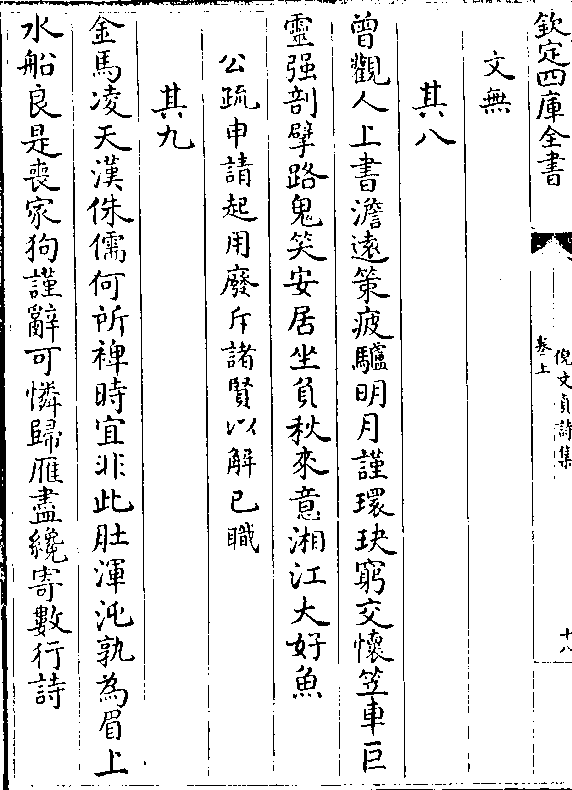 欽定四庫全書
倪文貞詩集
卷上
十八
文無
其八
曾觀人上書澹遠策疲驢明月謹環玦窮交懷笠車巨
靈强剖擘路鬼笑安居坐負秋來意湘江大好魚
公疏申請起用廢斥諸賢以解已職
其九
金馬凌天漢侏儒何所裨時宜非此肚渾沌孰為眉上
水船良是喪家狗謹辭可憐歸雁盡纔寄數行詩